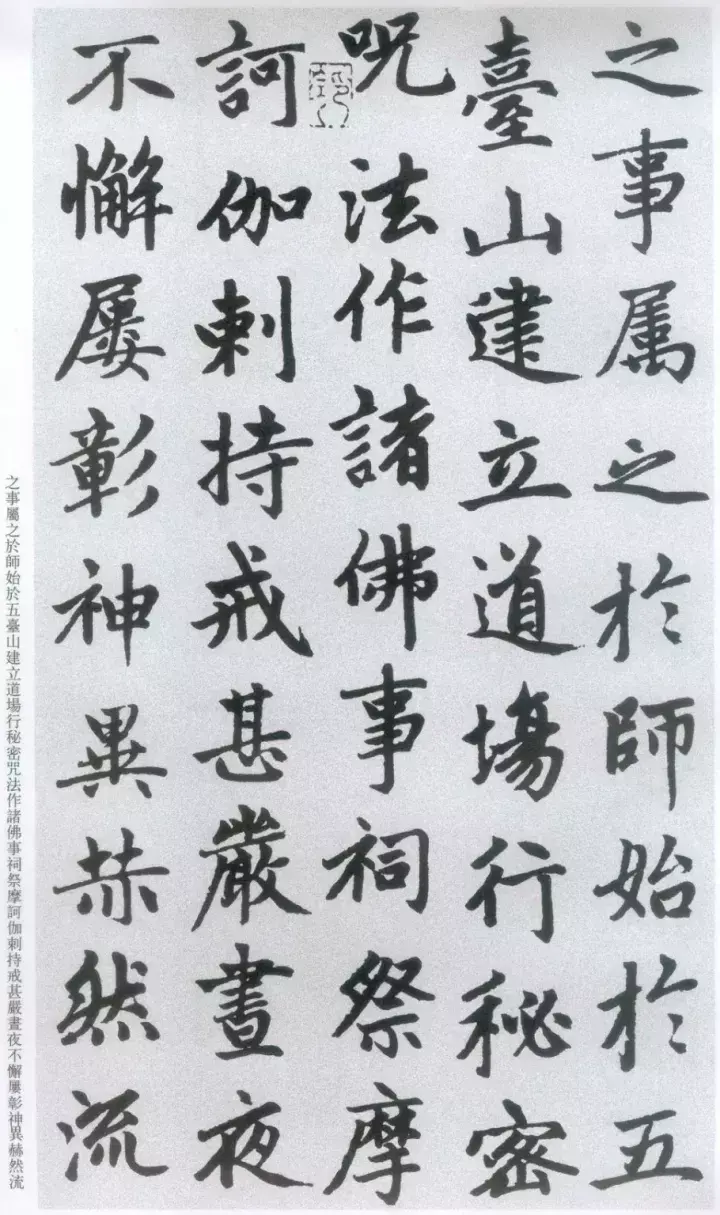 之事属之於師始於五
臺山建立道場行秘密
呪法作諸佛事祠祭摩
訶伽刺持戒甚嚴晝夜
不懈屢彰神異赫然流
之事屬之於師始於五臺山建立道場行秘密咒法作諸佛事祠祭摩訶伽刺持戒甚嚴晝夜不懈屢彰神異赫然流